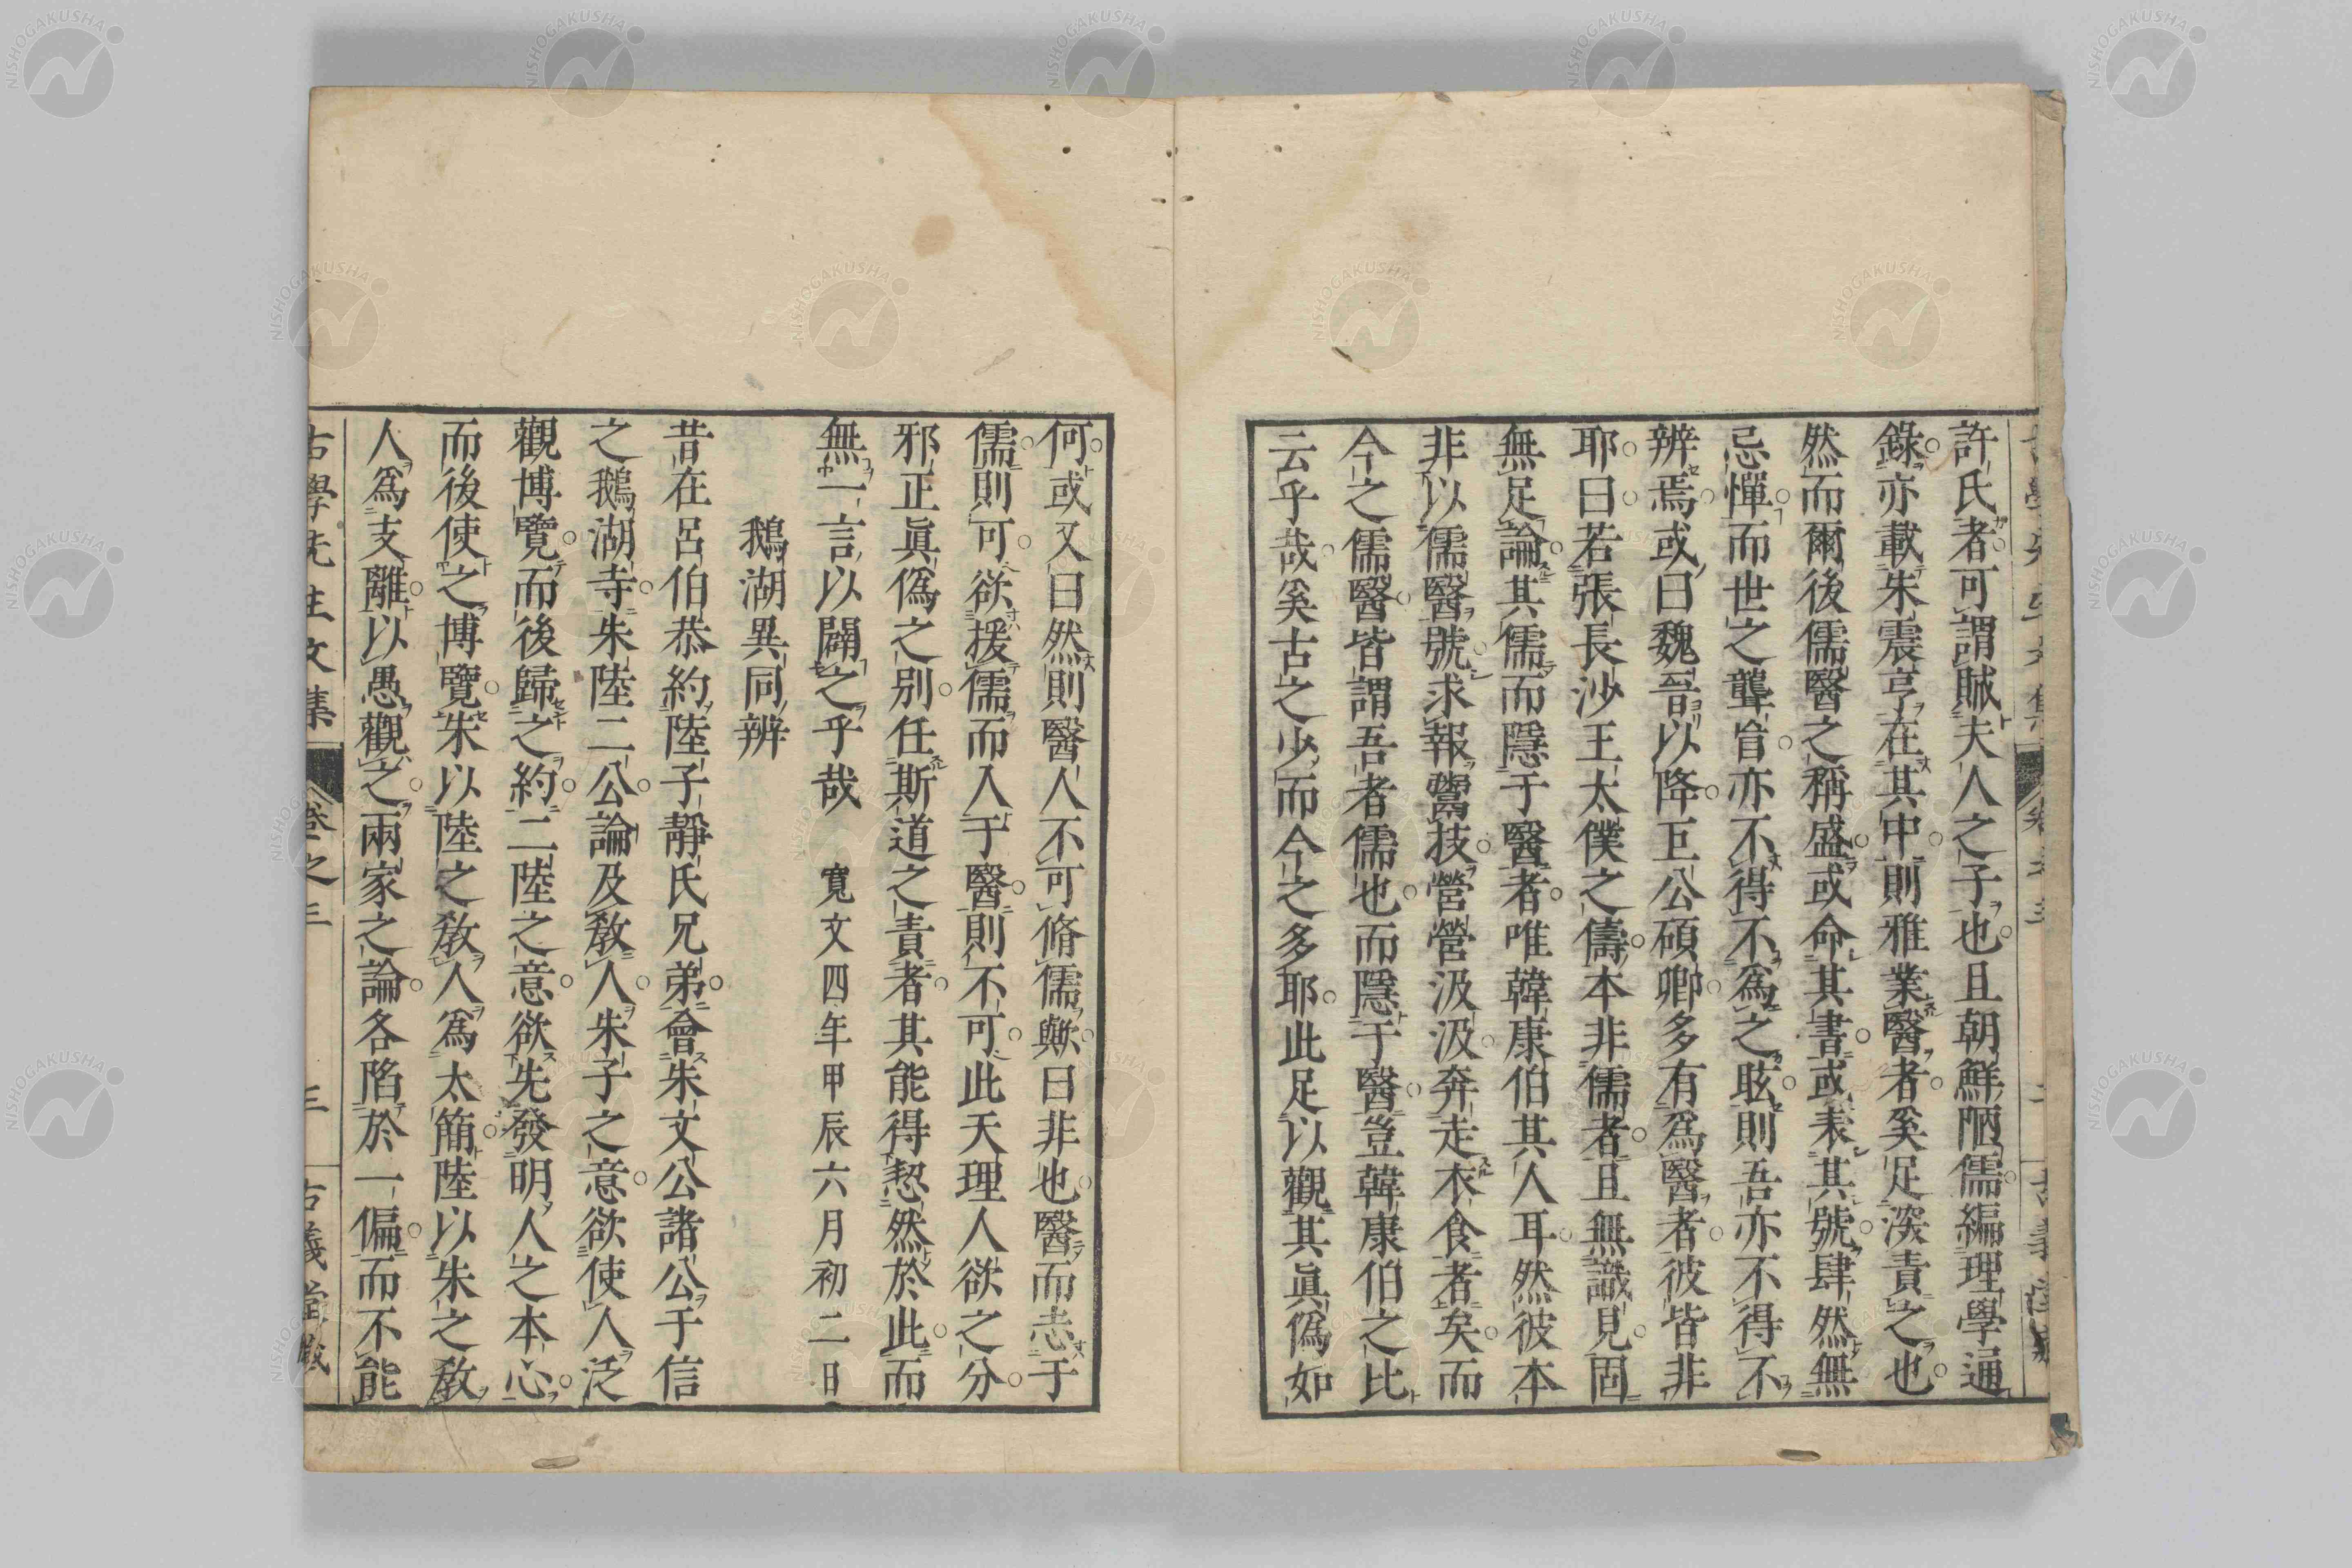 許氏者可謂賊夫人之子也且朝鮮陋儒編理學通
錄亦載朱震亨在其中則雅業醫者奚足深責之也
然而爾後儒醫之稱盛或命其書或表其號肆然無
忌憚而世之聾盲亦不得不爲之眩則吾亦不得不
辨焉或曰魏晉以降巨公碩卿多有爲醫者彼皆非
耶曰若張長沙王太僕之儔本非儒者且無識見固
無足論其儒而隱于醫者唯韓康伯其人耳然彼本
非以儒醫號求報鬻技營營汲汲奔走衣食者矣而
今之儒醫皆謂吾者儒也而隱于醫豈韓康伯之比
云乎哉奚古之少而今之多耶此足以觀其眞僞如
何或又曰然則醫人不可脩儒歟曰非也醫而志于
儒則可欲援儒而入于醫則不可此天理人欲之分
邪正眞僞之別任斯道之責者其能得恝然於此而
無一言以闢之乎哉 寬文四年甲辰六月初二日
鵝湖異同辨
昔在呂伯恭約陸子靜氏兄弟會朱文公諸公于信
之鵝湖寺朱陸二公論及敎人朱子之意欲使人泛
觀博覽而後歸之約二陸之意欲先發明人之本心
而後使之博覽朱以陸之敎人爲太簡陸以朱之敎
人爲支離以愚觀之兩家之論各陷於一偏而不能
古學先生文集 卷之三 三 古義堂藏